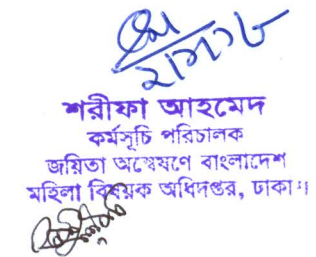 শরীফা আহমেদ
কর্মসূচি পরিচালক
জয়িতা অন্বেষণে বাংলাদেশ
মহিলা বিষয়ক অধিদপ্তর, ঢাকা।